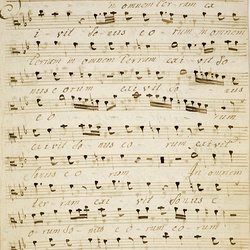 in omnem ter- ram ex
i- vit so- nus e o- rum in omnem
terram in omnem terram exi- vit so
nus eorum exi vit so-
e o rum
exivit so- nus eo- rum exivit
sonus e o rum in omnem
ter- ram exi vit sonus e
o- rum so- nus e o- rum eo- rum